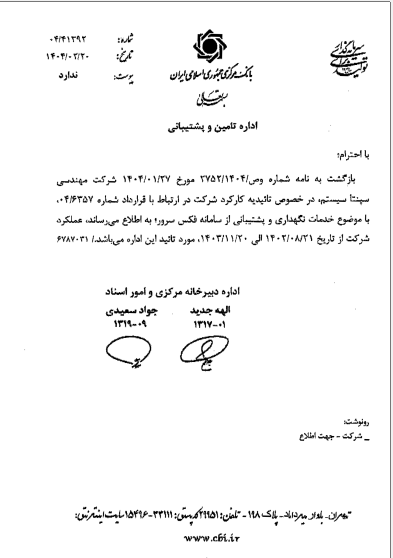 سرمایه‌گذاری
برای
تولید
بانک مرکزی جمهوری اسلامی ایران
بسمه تعالی
شماره: ۰۴/۴۱۳۹۲
تاریخ: ۱۴۰۴/۰۲/۲۰
پیوست: ندارد
اداره تامین و پشتیبانی
با احترام؛
بازگشت به نامه شماره وص/۲۷۵۲/۱۴۰۴ مورخ ۱۴۰۴/۰۱/۲۷ شرکت مهندسی
سپنتا سیستم، در خصوص تائیدیه کارکرد شرکت در ارتباط با قرارداد شماره ۰۴/۶۳۵۷،
با موضوع خدمات نگهداری و پشتیبانی از سامانه فکس سرور؛ به اطلاع می‌رساند، عملکرد
شرکت از تاریخ ۱۴۰۲/۰۸/۲۱ الی ۱۴۰۳/۱۱/۲۰، مورد تائید این اداره می‌باشد./ ۶۷۸۷۰۳۱
اداره دبیرخانه مرکزی و امور اسناد
الهه جدید جواد سعیدی
۱۳۱۷-۰۱ ۱۳۱۹-۰۹
رونوشت:
_ شرکت - جهت اطلاع
تهران- بلوار میرداماد- پلاک ۱۹۸- تلفن: ۲۹۹۵۱ کدپستی: ۳۳۱۱۱-۱۵۴۹۶ سایت اینترنتی:
www.cbi.ir